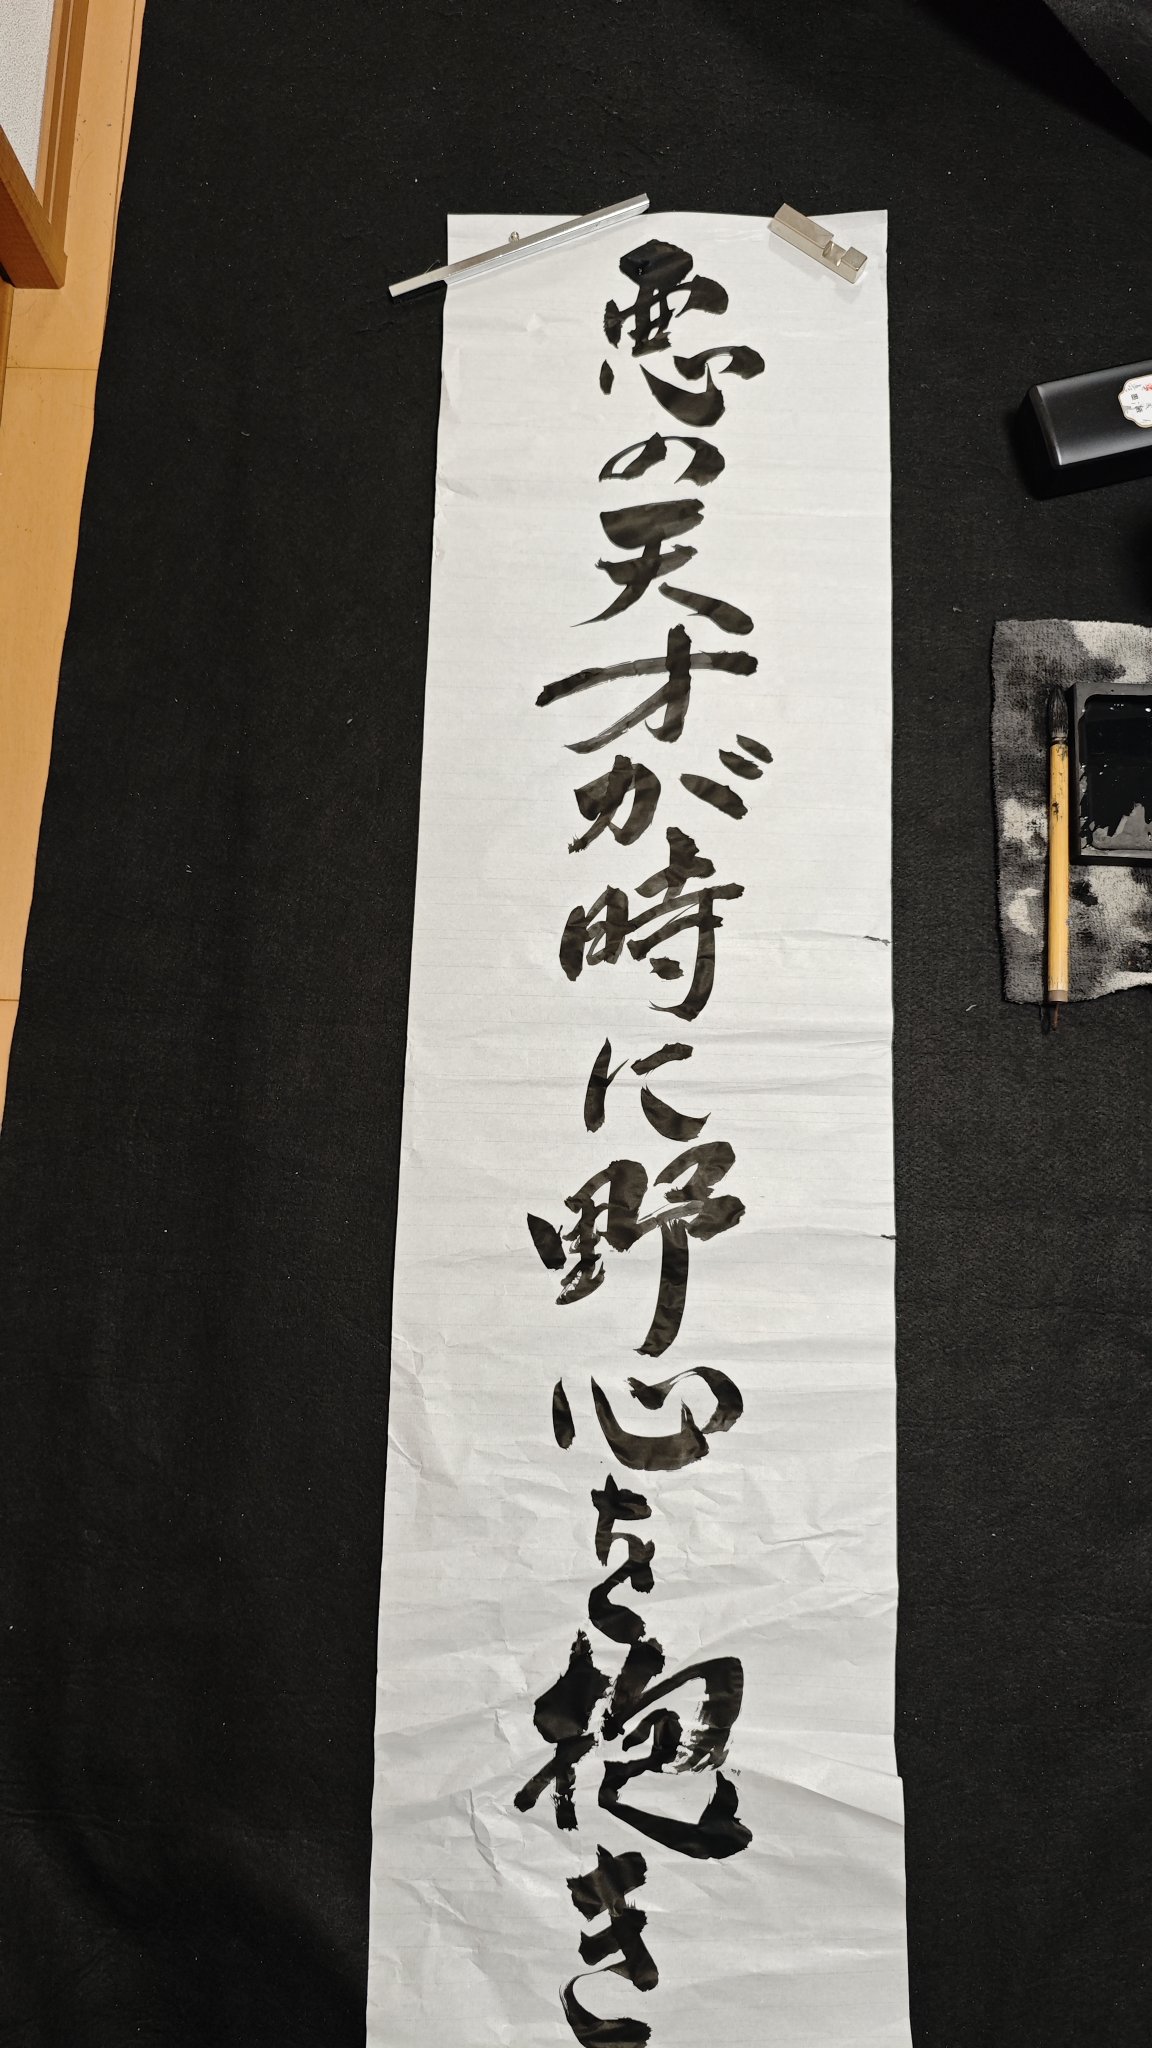 悪の天才が時に野心を抱き